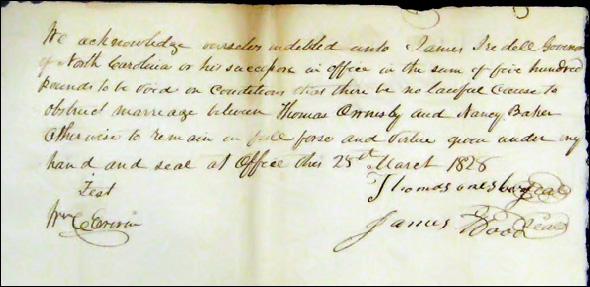 We acknowledge ourselves indebted unto James Iredell Governor
of North Carolina or his successor in office in the sum of five hundred
pounds to be void on Conditions that there be no lawful Cause to
obstruct marriage between Thomas Ormsby and Nancy Baker
Otherwise to remain in full forse and virtue given under my
hand and seal at Office this 28th March 1828
Test
Thomas ormsby Seal
Wm C Erwin
James Wood Seal